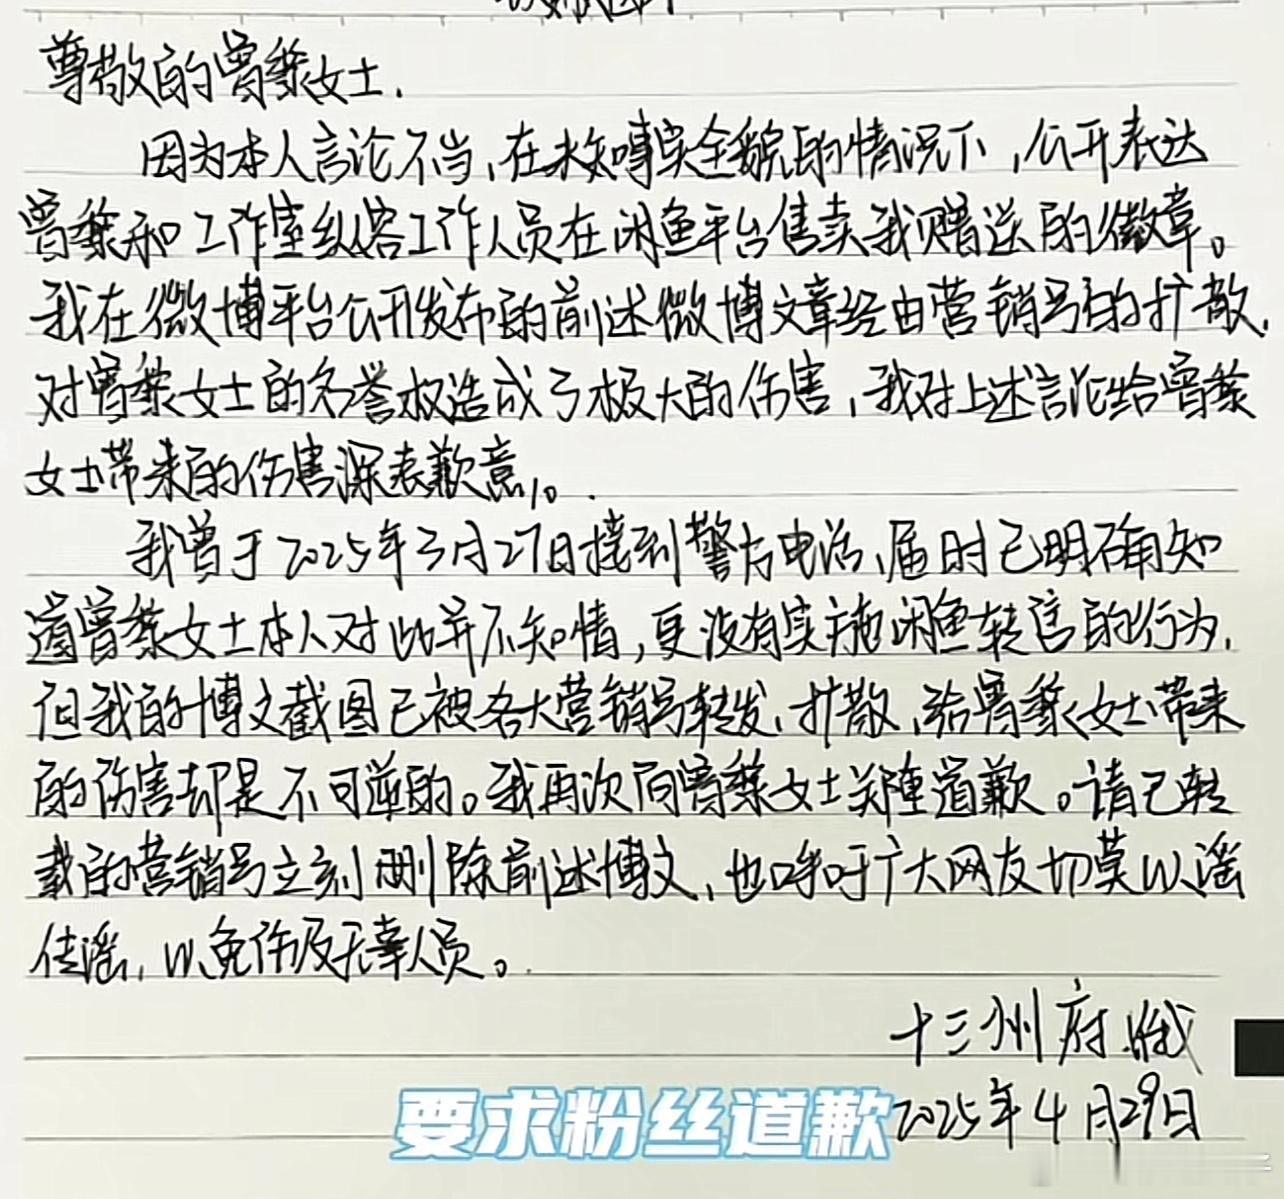 尊敬的曾黎女士.
因为本人言论不当、在未知事实全貌的情况下，公开表达
曾黎和工作室纵容工作人员在闲鱼平台售卖我赠送的徽章。
我在微博平台公开发布的前述微博文章经由营销号的扩散，
对曾黎女士的名誉权造成了极大的伤害，我对上述言论给曾黎
女士带来的伤害深表歉意。
我曾于2025年3月27日接到警方电话、届时已明确知
道曾黎女士本人对此并不知情，更没有实施闲鱼转售的行为，
但我的博文截图已被各大营销号转发、扩散、给曾黎女士带来
的伤害却是不可逆的。我再次向曾黎女士郑重道歉。请已转
载的营销号立刻删除前述博文、也呼吁广大网友切莫以谣
传谣，以免伤及无辜人员。
十三州府
2025年4月29日
要求粉丝道歉